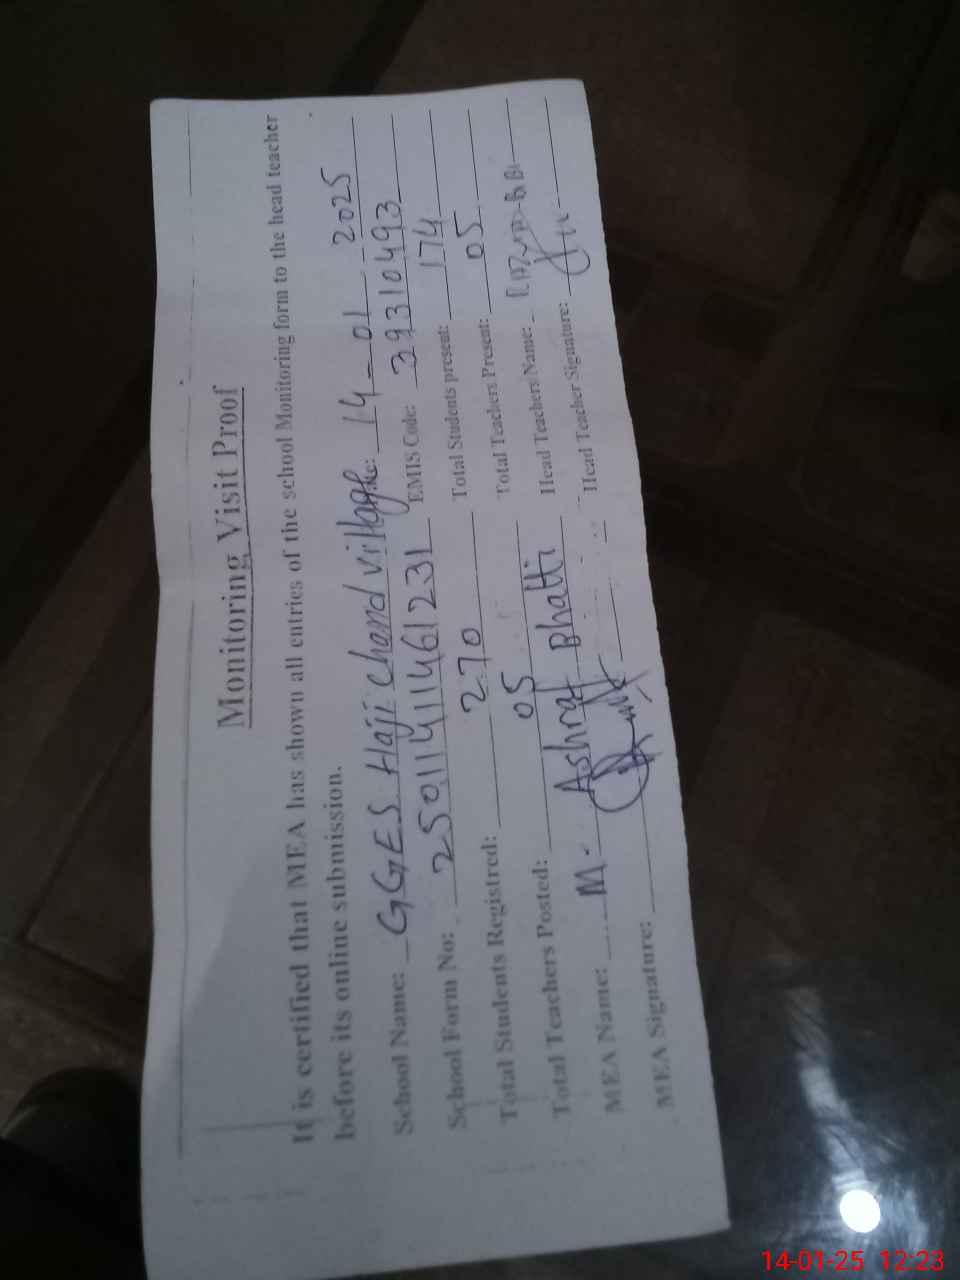 Monitoring Visit Proof
It is certified that MEA has shown all entries of the school Monitoring form to the head teacher
before its online submission.
School Name: GGES Haji chand village Date: 14-01-2025
School Form No: 25011411461231 EMIS Code: 39310493
Total Students Registred: 270 Total Students present: 174
Total Teachers Posted: 05 Total Teachers Present: 05
MEA Name: M. Ashraf Bhatti Head Teachers Name: BiBi
MEA Signature: Head Teacher Signature:
14-01-25 12:23